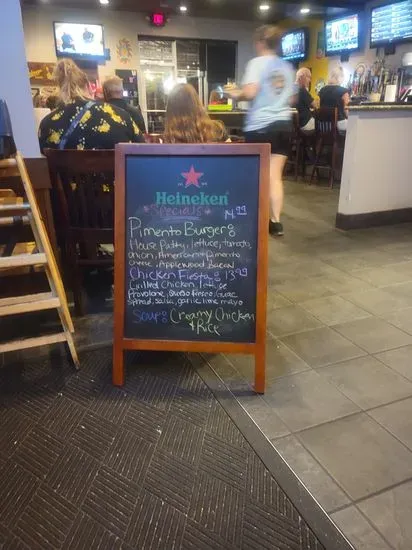 EXIT
Heineken
Specials
14.99
Pimento Burger:
House Patty, lettuce, tomato,
onion, American + pimento
cheese, Applewood Bacon
Chicken Fiesta: 13.99
Grilled Chicken, lettuce
Provolone, Queso Fresco, guac
spread, salsa, garlic lime mayo
Soup: Creamy Chicken
& Rice